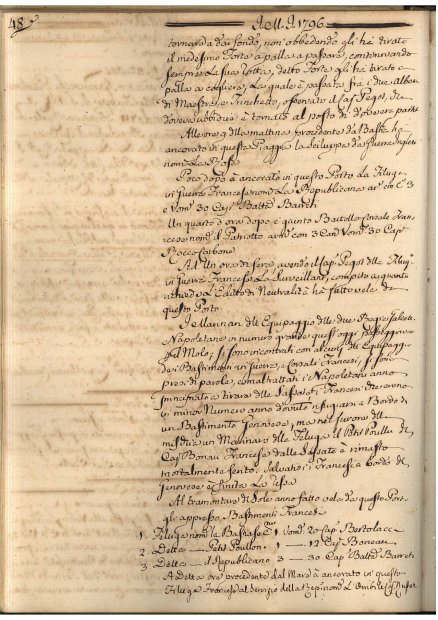 48
I.M.I. 1796
tornare a dar fondo, non obbedendo gli ha tirato
il medesimo Forte a palla a passare, continuando
sempre La sua rotta, detto Forte gli ha tirato a
palla a coquere, La quale è passata fra i due Alberi
di Maestra, e Trinchetto, osservato il Cap Pegot, che
doveva ubbidire è tornato al posto di dovere partì
Alle ore 9 di mattina procedente da Bastia ha
ancorato di questa Piaggia la sciluppa da guerra Inglese
nom La Rose
Poco dopo è ancorato in questo Porto La Filuga
in guerra Francese nom La Republicana arm con C 3
e Vom 30 Cap Batt Barreti
Un quarto d'ora dopo è giunto Battello Corsale Fran
cese nom il Patriotto arm con 3 Can Vom 30 Cap
Boccocarbone
Ad Un'ora di sera avendo il Cap Pegot dlle Filug
in guerra Francese La Surveillant, compito a quanto
richiede L'Editto di Neutralità ha fatto vele da
questo Porto
I Marinari dll Equipaggio dlle due
Napoletane in numero grande quest'oggi passeggiando
sul Molo, si sono incontrati con alcuni dll Equipaggi
dei Bastimenti in guerra, e Corsali Francesi, si sono
presi di parole, e maltrattati i Napoletani anno
principiato a tirare dlle Sassate, i Francesi che erono
in minor Numero anno dovuto rifugiarsi a Bordo di
un Bastimento Genovese, ma nel furore dll
mischia un Marinaro dlle Feluga il Petit Poullon dl
Cap Bonau Francese dalle Sassate è rimasto
mortalmente ferito. Salvatosi i Francesi a bordo dl
Genovese è finita La rissa
Al tramontare dl Sole anno fatto vela da questo Porto
gli appresso Bastimenti Francesi
1. Feluga nom La Bastiase Can 1 Vom 20 Cap Bertolacc
2. Detta — Petit Poullon 1 — 12 Cap Boneau
3. Detta — il Republicano 3 — 30 Cap Batt Barreti
A detta ora procedente dal Mare è ancorato in questo
Filuga Francese al Servizio della Rep nom L'